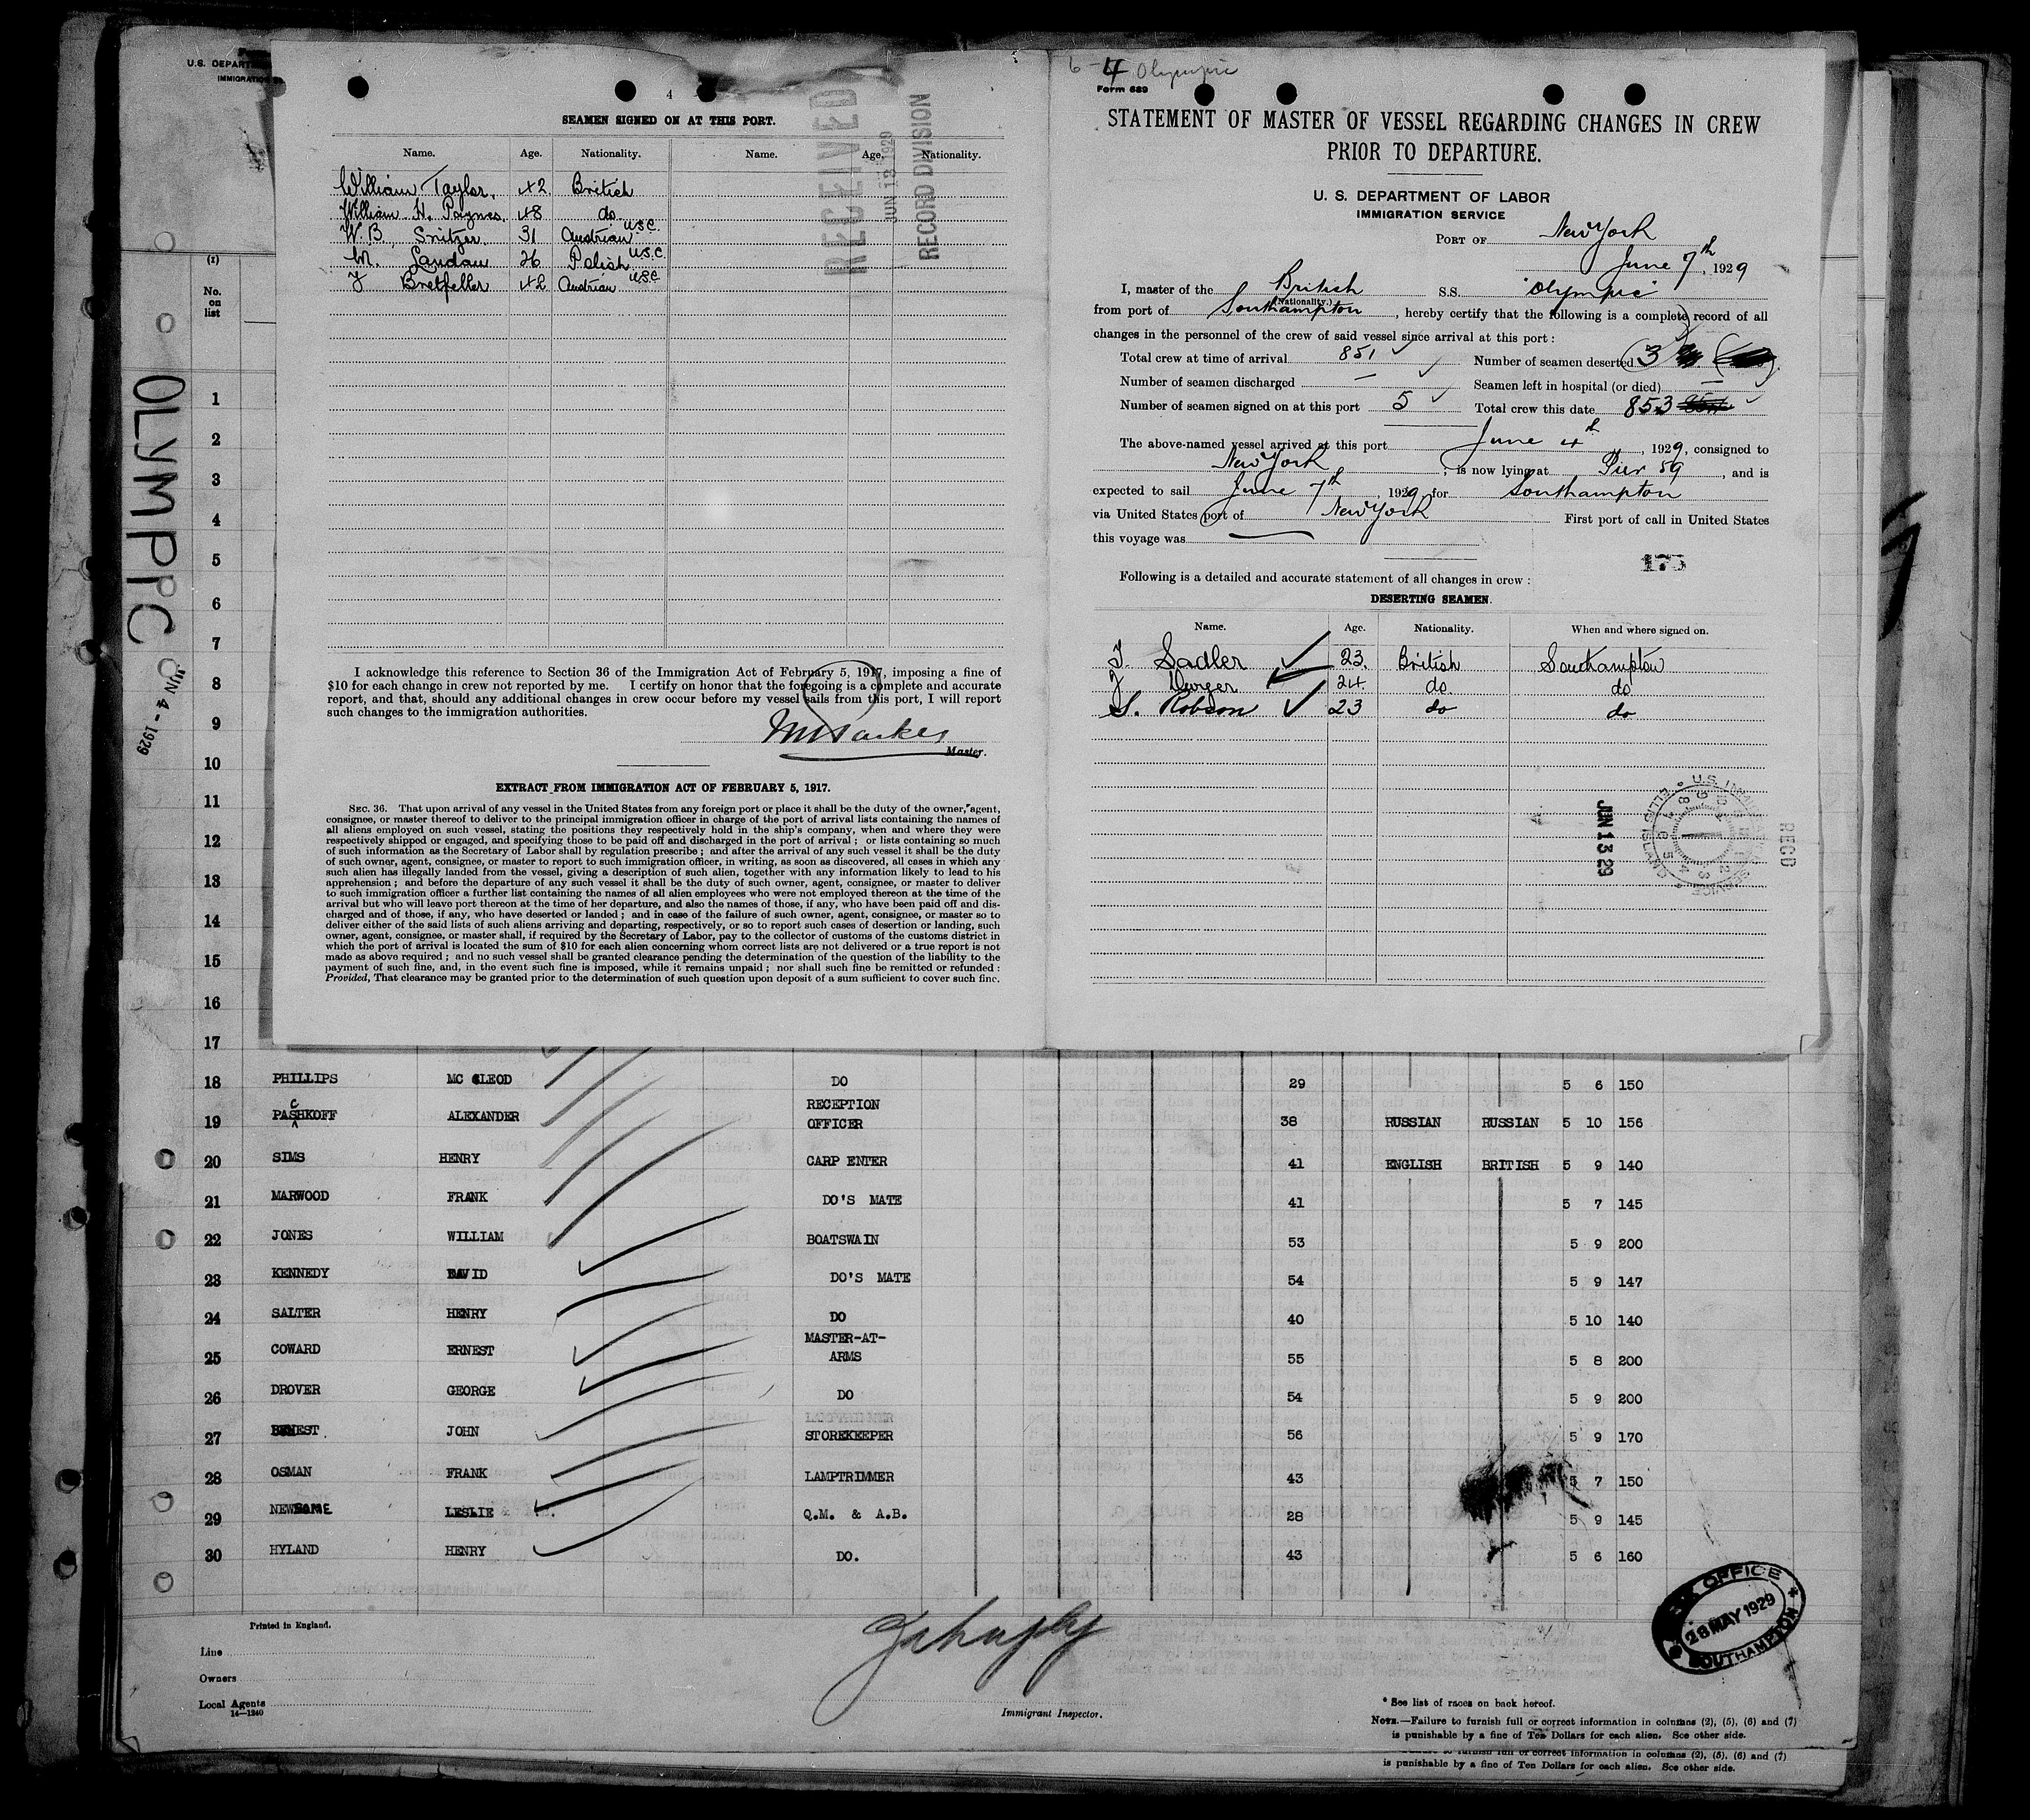 U.S. DEPART
IMMIGRATION
4
SEAMEN SIGNED ON AT THIS PORT.
Name. Age. Nationality. Name. Age. Nationality.
William Taylor, 42 British
William H. Paynes, 48 do.
W. B. Snitzer. 31 Austrian U.S.C.
M. Landau 26 Polish U.S.C.
J Bretfeller 42 Austrian U.S.C
RECEIVED
JUN 13 1929
RECORD DIVISION
I acknowledge this reference to Section 36 of the Immigration Act of February 5, 1917, imposing a fine of
$10 for each change in crew not reported by me. I certify on honor that the foregoing is a complete and accurate
report, and that, should any additional changes in crew occur before my vessel sails from this port, I will report
such changes to the immigration authorities.
Master.
EXTRACT FROM IMMIGRATION ACT OF FEBRUARY 5, 1917.
SEC. 36. That upon arrival of any vessel in the United States from any foreign port or place it shall be the duty of the owner, agent,
consignee, or master thereof to deliver to the principal immigration officer in charge of the port of arrival lists containing the names of
all aliens employed on such vessel, stating the positions they respectively hold in the ship's company, when and where they were
respectively shipped or engaged, and specifying those to be paid off and discharged in the port of arrival ; or lists containing so much
of such information as the Secretary of Labor shall by regulation prescribe ; and after the arrival of any such vessel it shall be the duty
of such owner, agent, consignee, or master to report to such immigration officer, in writing, as soon as discovered, all cases in which any
such alien has illegally landed from the vessel, giving a description of such alien, together with any information likely to lead to his
apprehension ; and before the departure of any such vessel it shall be the duty of such owner, agent, consignee, or master to deliver
to such immigration officer a further list containing the names of all alien employees who were not employed thereon at the time of the
arrival but who will leave port thereon at the time of her departure, and also the names of those, if any, who have been paid off and dis-
charged and of those, if any, who have deserted or landed ; and in case of the failure of such owner, agent, consignee, or master so to
deliver either of the said lists of such aliens arriving and departing, respectively, or so to report such cases of desertion or landing, such
owner, agent, consignee, or master shall, if required by the Secretary of Labor, pay to the collector of customs of the customs district in
which the port of arrival is located the sum of $10 for each alien concerning whom correct lists are not delivered or a true report is not
made as above required ; and no such vessel shall be granted clearance pending the determination of the question of the liability to the
payment of such fine, and, in the event such fine is imposed, while it remains unpaid ; nor shall such fine be remitted or refunded :
Provided, That clearance may be granted prior to the determination of such question upon deposit of a sum sufficient to cover such fine.
6-4 Olympic
Form 689
STATEMENT OF MASTER OF VESSEL REGARDING CHANGES IN CREW
PRIOR TO DEPARTURE.
U. S. DEPARTMENT OF LABOR
IMMIGRATION SERVICE
PORT OF New York
June 7th, 1929
I, master of the British S.S. "Olympic"
(Nationality.)
from port of Southampton, hereby certify that the following is a complete record of all
changes in the personnel of the crew of said vessel since arrival at this port :
Total crew at time of arrival 851 Number of seamen deserted 3
Number of seamen discharged — Seamen left in hospital (or died) —
Number of seamen signed on at this port 5 Total crew this date 853
The above-named vessel arrived at this port June 4th, 1929, consigned to
New York ; is now lying at Pier 59, and is
expected to sail June 7th, 1929, for Southampton
via United States port of New York First port of call in United States
this voyage was
175
Following is a detailed and accurate statement of all changes in crew :
DESERTING SEAMEN.
Name. Age. Nationality. When and where signed on.
T. Sadler 23. British Southampton
24. do do
S. Robson 23 do do
JUN 13 29
RECD
(1)
No.
on
list
OLYMPIC
JUN 4 - 1929
1
2
3
4
5
6
7
8
9
10
11
12
13
14
15
16
17
18 PHILLIPS MC CLEOD DO 29 5 6 150
19 PASCHKOFF ALEXANDER RECEPTION OFFICER 38 RUSSIAN RUSSIAN 5 10 156
20 SIMS HENRY CARP ENTER 41 ENGLISH BRITISH 5 9 140
21 MARWOOD FRANK DO'S MATE 41 5 7 145
22 JONES WILLIAM BOATSWAIN 53 5 9 200
23 KENNEDY DAVID DO'S MATE 54 5 9 147
24 SALTER HENRY DO 40 5 10 140
25 COWARD ERNEST MASTER-AT-ARMS 55 5 8 200
26 DROVER GEORGE DO 54 5 9 200
27 JOHN STOREKEEPER 56 5 9 170
28 OSMAN FRANK LAMPTRIMMER 43 5 7 150
29 NEWSOME LESLIE Q.M. & A.B. 28 5 9 145
30 HYLAND HENRY DO. 43 5 6 160
Printed in England.
Line
Owners
Local Agents
14—1240
Immigrant Inspector.
OFFICE
28 MAY 1929
SOUTHAMPTON
* See list of races on back hereof.
NOTE.—Failure to furnish full or correct information in columns (2), (5), (6) and (7)
is punishable by a fine of Ten Dollars for each alien. See other side.
to furnish full or correct information in columns (2), (5), (6) and (7)
is punishable by a fine of Ten Dollars for each alien. See other side.